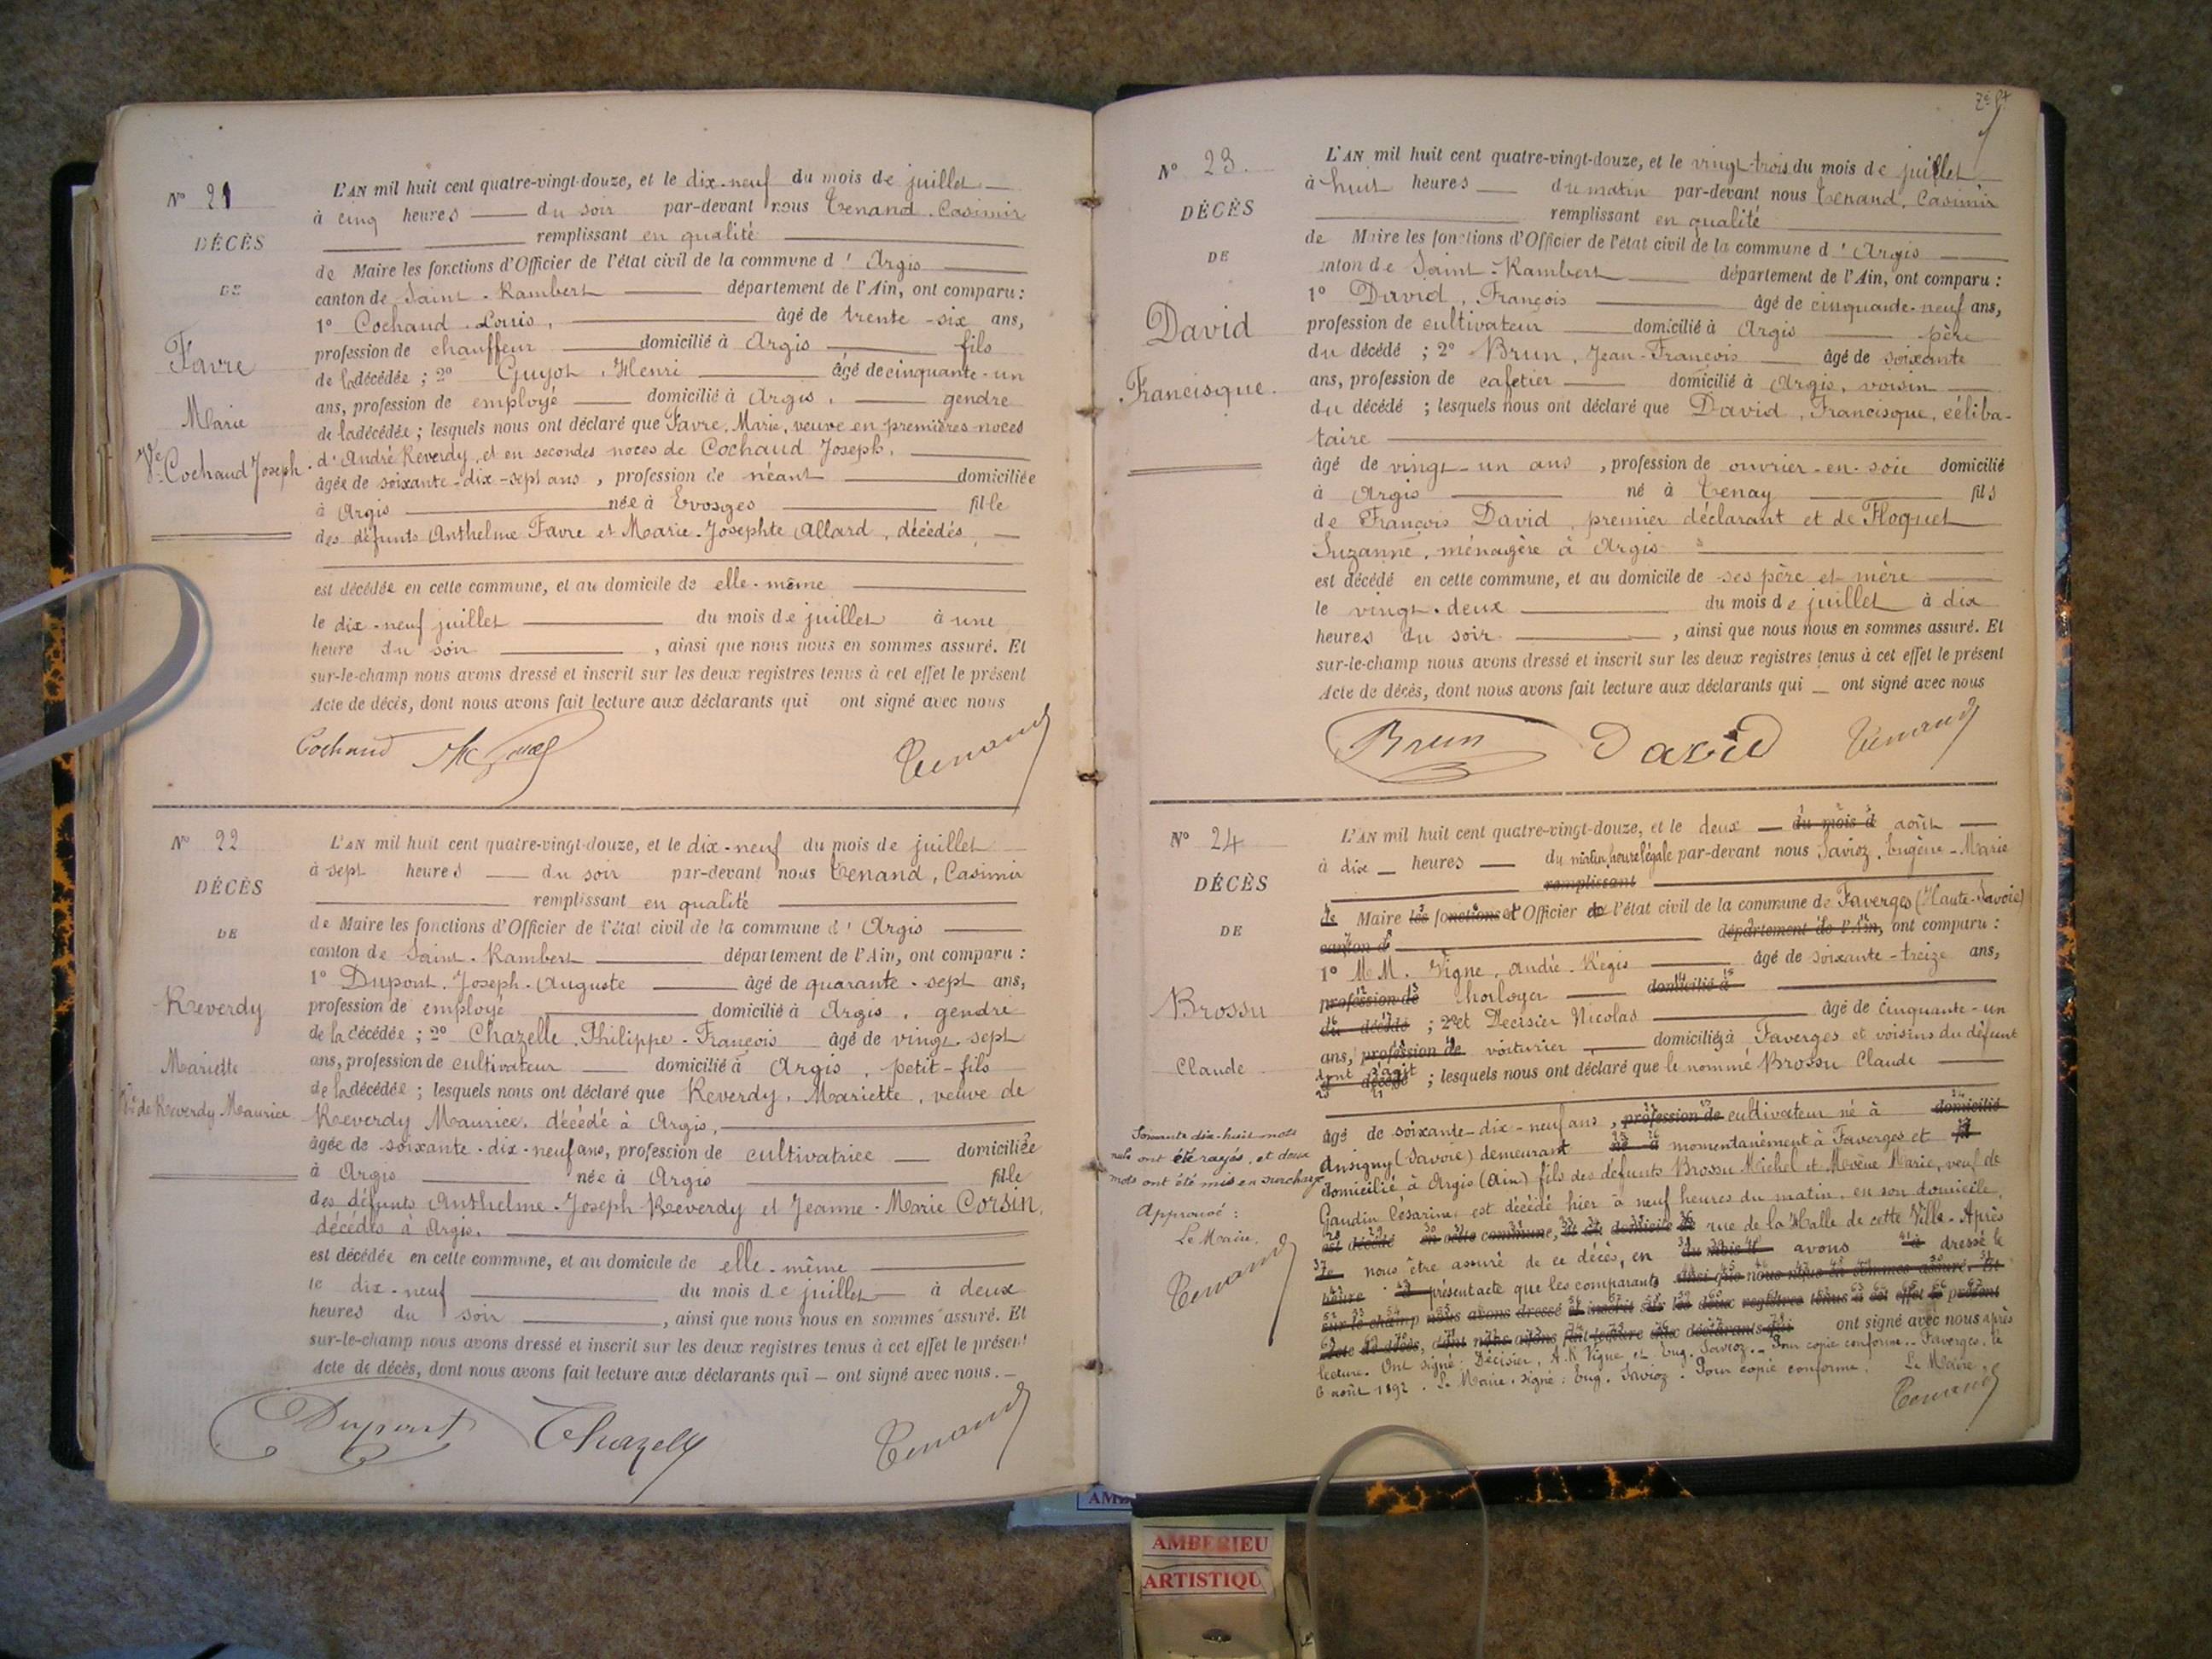 N° 21
DÉCÈS
DE
Favre
Marie
Ve Cochaud Joseph.
L'AN mil huit cent quatre-vingt-douze, et le dix-neuf du mois de juillet
à cinq heures du soir par-devant nous Tenand, Casimir
remplissant en qualité
de Maire les fonctions d'Officier de l'état civil de la commune d'Argis
canton de Saint-Rambert département de l'Ain, ont comparu :
1° Cochaud, Louis, âgé de trente-six ans,
profession de chauffeur domicilié à Argis fils
de la décédée ; 2° Guyot, Henri âgé de cinquante-un
ans, profession de employé domicilié à Argis, gendre
de la décédée ; lesquels nous ont déclaré que Favre, Marie, veuve en premières noces
d'André Reverdy, et en secondes noces de Cochaud Joseph,
âgée de soixante-dix-sept ans, profession de néant domiciliée
à Argis née à Evosges fille
des défunts Anthelme Favre et Marie-Josephte Allard, décédés,
est décédée en cette commune, et au domicile de elle-même
le dix-neuf juillet du mois de juillet à une
heure du soir, ainsi que nous nous en sommes assuré. Et
sur-le-champ nous avons dressé et inscrit sur les deux registres tenus à cet effet le présent
Acte de décès, dont nous avons fait lecture aux déclarants qui ont signé avec nous
Cochaud Tenand
N° 22
DÉCÈS
DE
Reverdy
Mariette
Ve de Reverdy Maurice
L'AN mil huit cent quatre-vingt-douze, et le dix-neuf du mois de juillet
à sept heures du soir par-devant nous Tenand, Casimir
remplissant en qualité
de Maire les fonctions d'Officier de l'état civil de la commune d'Argis
canton de Saint-Rambert département de l'Ain, ont comparu :
1° Dupont, Joseph-Auguste âgé de quarante-sept ans,
profession de employé domicilié à Argis, gendre
de la décédée ; 2° Chazelle, Philippe-François âgé de vingt-sept
ans, profession de cultivateur domicilié à Argis, petit-fils
de la décédée ; lesquels nous ont déclaré que Reverdy, Mariette, veuve de
Reverdy Maurice, décédé à Argis,
âgée de soixante-dix-neuf ans, profession de cultivatrice domiciliée
à Argis née à Argis fille
des défunts Anthelme-Joseph Reverdy et Jeanne-Marie Corsin,
décédés à Argis.
est décédée en cette commune, et au domicile de elle-même
le dix-neuf du mois de juillet à deux
heures du soir, ainsi que nous nous en sommes assuré. Et
sur-le-champ nous avons dressé et inscrit sur les deux registres tenus à cet effet le présent
Acte de décès, dont nous avons fait lecture aux déclarants qui — ont signé avec nous.
Dupont Chazelle Tenand
N° 23.
DÉCÈS
DE
David
Francisque.
L'AN mil huit cent quatre-vingt-douze, et le vingt-trois du mois de juillet
à huit heures du matin par-devant nous Tenand, Casimir
remplissant en qualité
de Maire les fonctions d'Officier de l'état civil de la commune d'Argis
anton de Saint-Rambert département de l'Ain, ont comparu :
1° David, François âgé de cinquante-neuf ans,
profession de cultivateur domicilié à Argis père
du décédé ; 2° Brun, Jean-François âgé de soixante
ans, profession de cafetier domicilié à Argis, voisin
du décédé ; lesquels nous ont déclaré que David, Francisque, céliba-
taire
âgé de vingt-un ans, profession de ouvrier-en-soie domicilié
à Argis né à Tenay fils
de François David, premier déclarant et de Floquet
Suzanne, ménagère à Argis
est décédé en cette commune, et au domicile de ses père et mère
le vingt-deux du mois de juillet à dix
heures du soir, ainsi que nous nous en sommes assuré. Et
sur-le-champ nous avons dressé et inscrit sur les deux registres tenus à cet effet le présent
Acte de décès, dont nous avons fait lecture aux déclarants qui — ont signé avec nous
Brun David Tenand
N° 24
DÉCÈS
DE
Brossu
Claude
Soixante dix-huit mots
nuls ont été rayés, et deux
mots ont été mis en surcharge
Approuvé :
Le Maire,
Tenand
L'AN mil huit cent quatre-vingt-douze, et le deux du mois d août
à dix heures du matin, heure légale par-devant nous Savioz, Eugène-Marie
remplissant
de Maire les fonctions et Officier de l'état civil de la commune de Faverges (Haute-Savoie)
canton d département de l'Ain, ont comparu :
1° MM. Vigne, André-Régis âgé de soixante-treize ans,
profession de horloger domicilié à
du décédé ; 2° et Decisier Nicolas âgé de cinquante-un
ans, profession de voiturier domiciliés à Faverges et voisins du défunt
décédé ; lesquels nous ont déclaré que le nommé Brossu Claude
âgé de soixante-dix-neuf ans, profession de cultivateur né à domicilié
Ansigny (Savoie) demeurant né à momentanément à Faverges et fil
domicilié à Argis (Ain) fils des défunts Brossu Michel et Marie, veuf de
Gaudin Césarine, est décédé hier à neuf heures du matin, en son domicile,
est décédé en cette commune, et au domicile de rue de la Halle de cette Ville. Après
le nous être assuré de ce décès, en du mois d avons à dressé le
heure présent acte que les comparants ainsi que nous nous en sommes assuré. Et
sur-le-champ nous avons dressé et inscrit sur les deux registres tenus à cet effet le présent
Acte de décès, dont nous avons fait lecture aux déclarants qui ont signé avec nous après
lecture. Ont signé : Décisier, A.R. Vigne et Eug. Savioz. Pour copie conforme. Faverges, le
6 août 1892. Le Maire, signé : Eug. Savioz. Pour copie conforme. Le Maire,
Tenand
AMBERIEU
ARTISTIQU